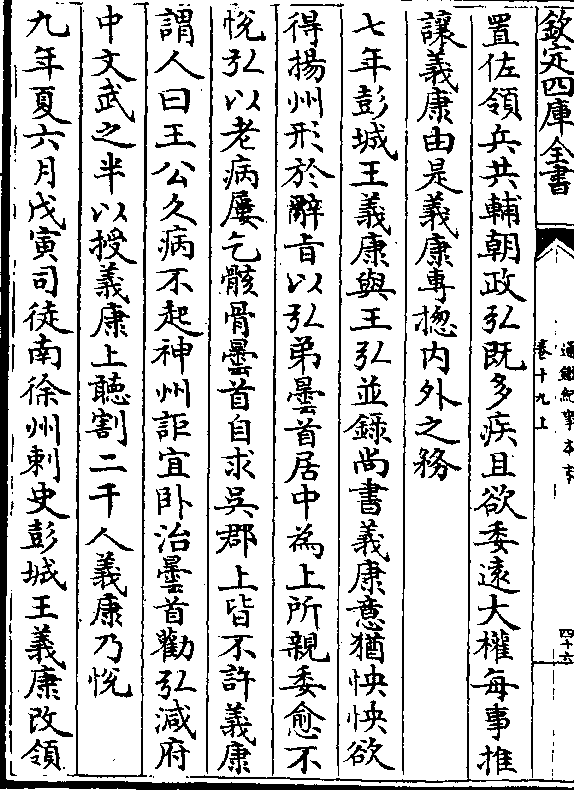 欽定四庫全書
通鑑紀事本末
卷十九上
四十六
置佐領兵共輔朝政弘既多疾且欲委逺大權每事推
讓義康由是義康專揔内外之務
七年彭城王義康與王弘並錄尚書義康意猶怏怏欲
得揚州形於辭㫖以弘弟曇首居中為上所親委愈不
悅弘以老病屢乞骸骨曇首自求吳郡上皆不許義康
謂人曰王公久病不起神州詎宜卧治曇首勸弘減府
中文武之半以授義康上聽割二千人義康乃悅
九年夏六月戊寅司徒南徐州刺史彭城王義康改領